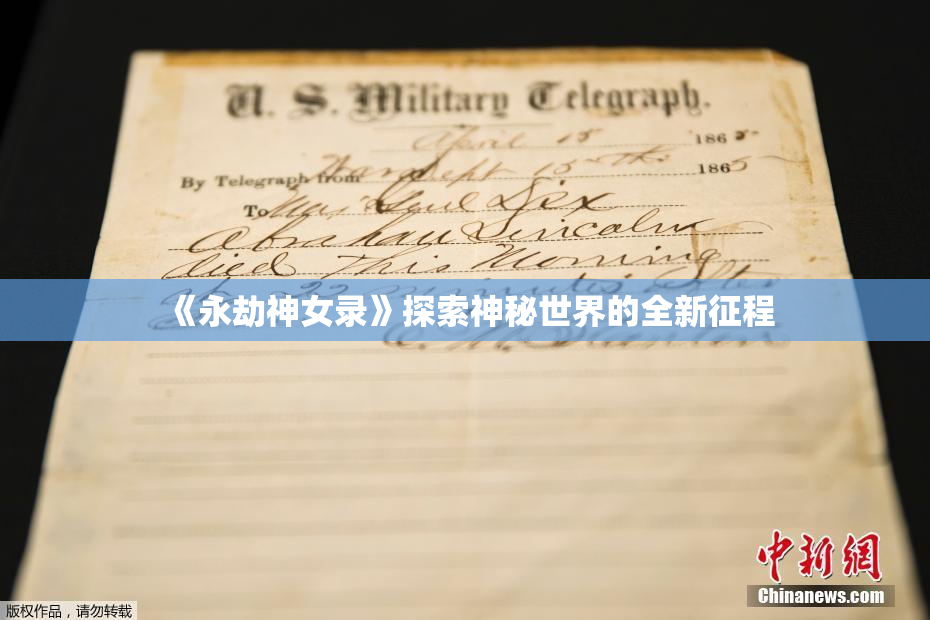 U. S. Military Telegraph.
April 15 1865
By Telegraph from War Dept 15th 1865
To Maj Genl Dix
Abraham Lincoln
died This Morning
at 22 minutes after
《永劫神女录》探索神秘世界的全新征程
E. M. Stanton
中新网
Chinanews.com
版权作品，请勿转载